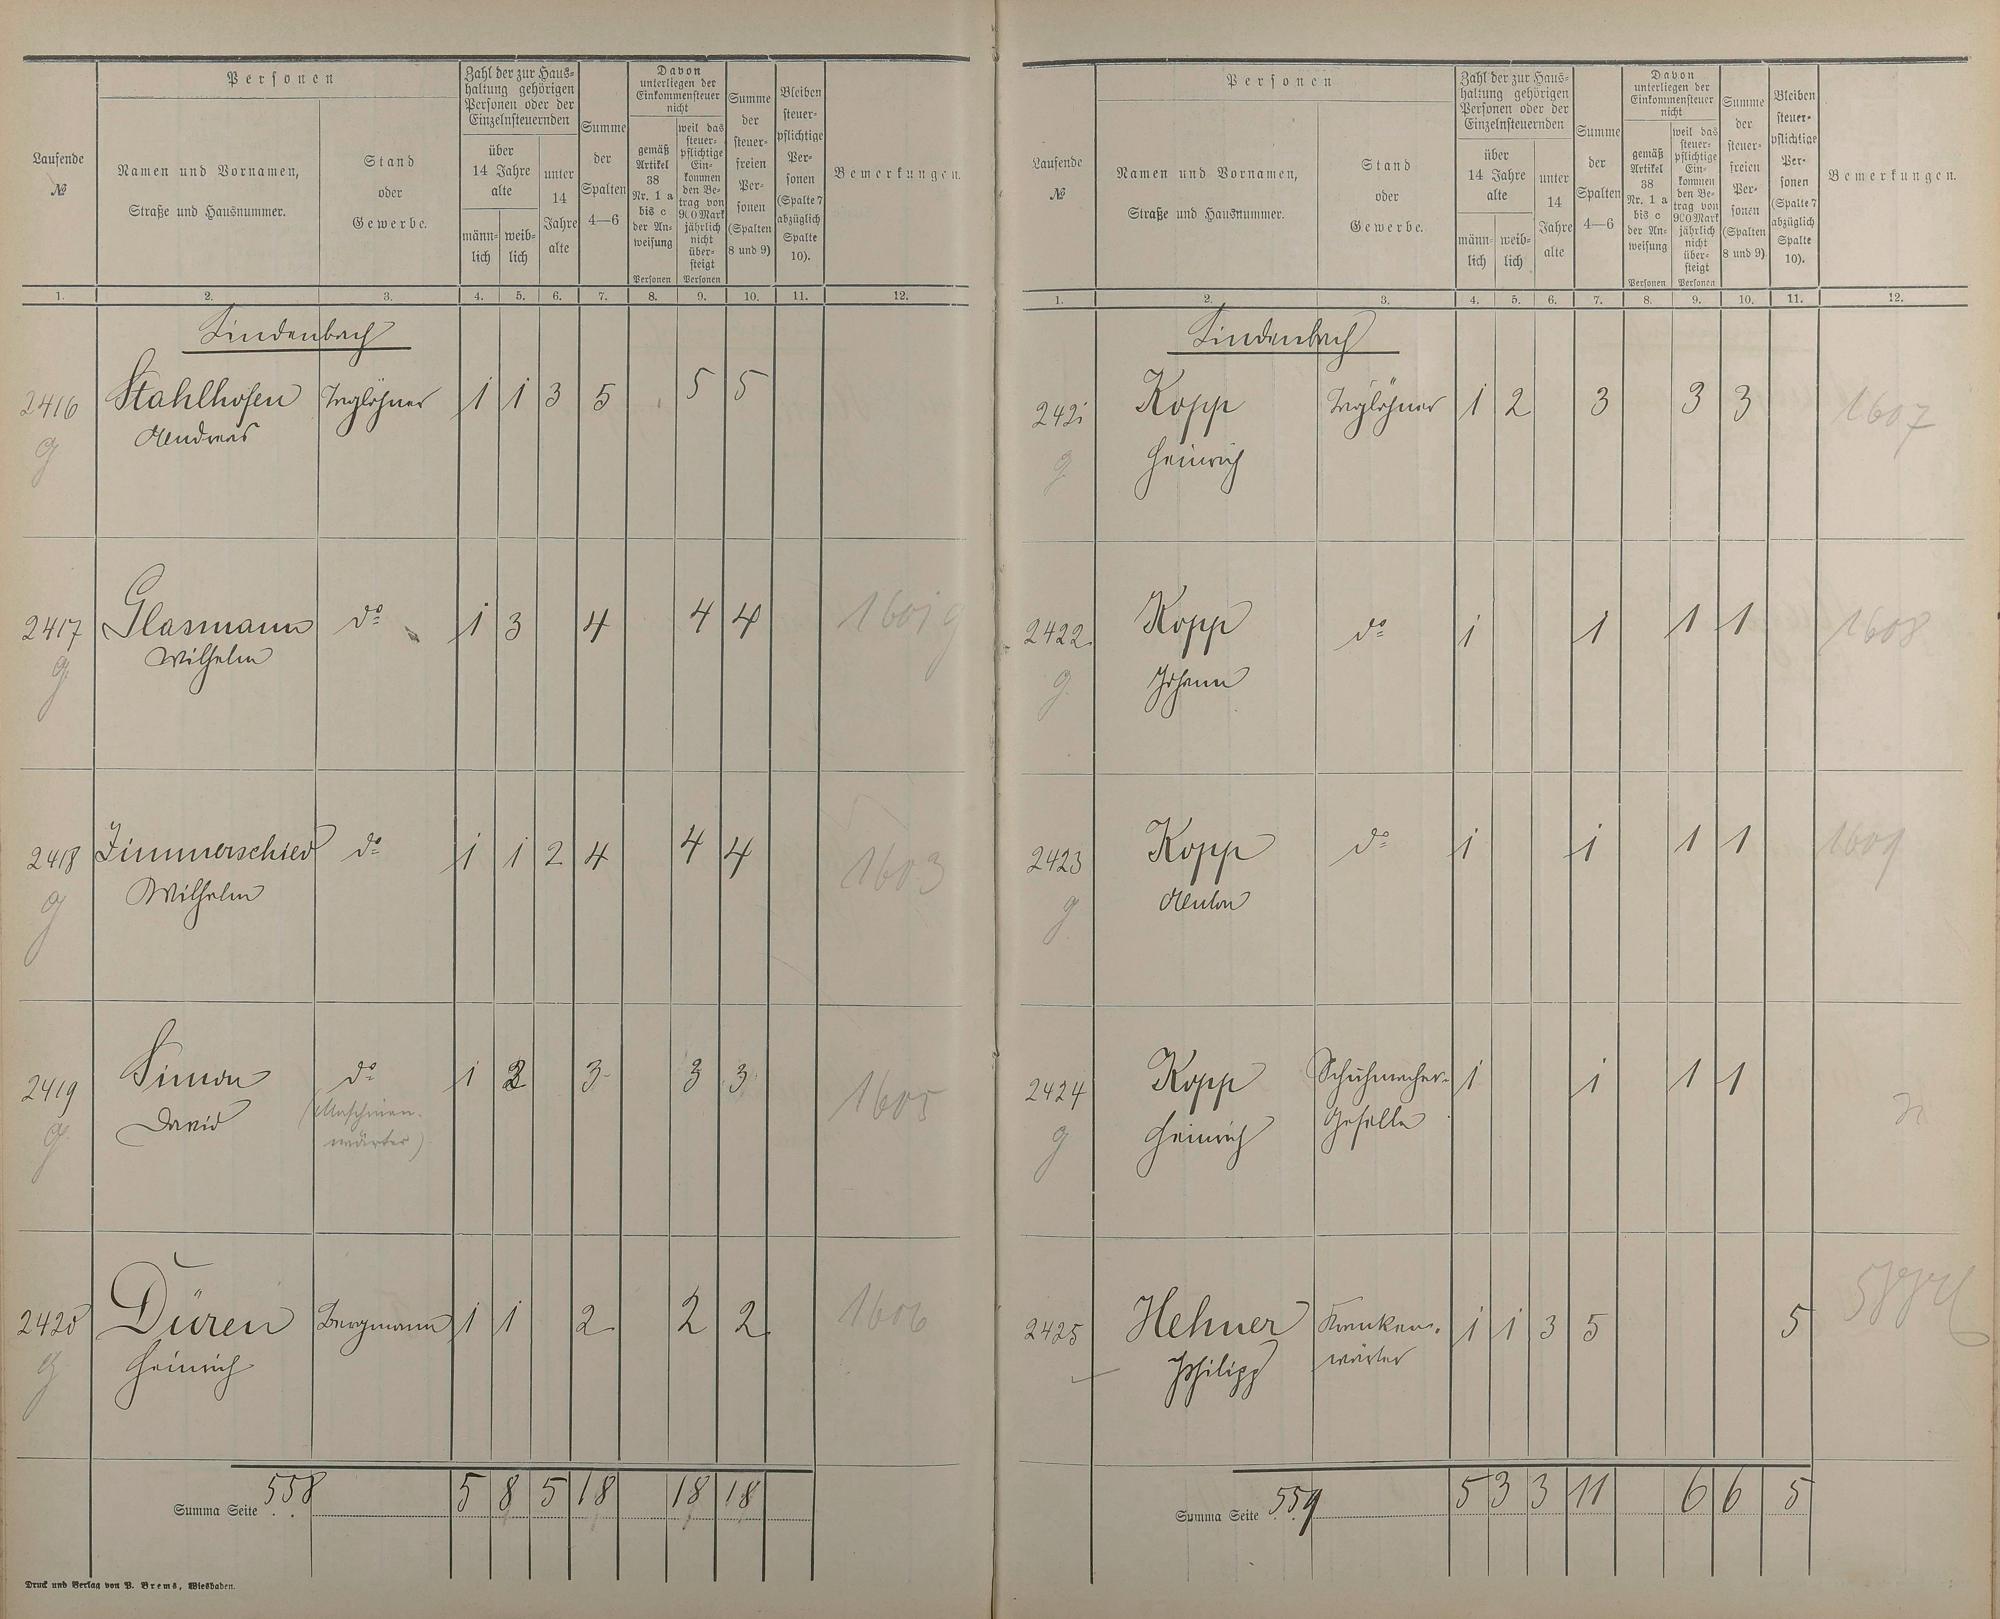 Laufende
№
Personen
Namen und Vornamen,
Straße und Hausnummer.
Stand
oder
Gewerbe.
Zahl der zur Haus-
haltung gehörigen
Personen oder der
Einzelnsteuernden
über
14 Jahre
alte
männ-
lich
weib-
lich
unter
14
Jahre
alte
Summe
der
Spalten
4—6
Davon
unterliegen der
Einkommensteuer
nicht
gemäß
Artikel
38
Nr. 1 a
bis c
der An-
weisung
Personen
weil das
steuer-
pflichtige
Ein-
kommen
den Be-
trag von
900 Mark
jährlich
nicht
über-
steigt
Personen
Summe
der
steuer-
freien
Per-
sonen
(Spalten
8 und 9)
Bleiben
steuer-
pflichtige
Per-
sonen
(Spalte 7
abzüglich
Spalte
10).
Bemerkungen.
1. 2. 3. 4. 5. 6. 7. 8. 9. 10. 11. 12.
Lindenbach
2416 Stahlhofen Taglöhner 1 1 3 5 5 5
g Andreas
2417 Glasmann do 1 3 4 4 4 1601 g
g Wilhelm
2418 Zimmerschied do 1 1 2 4 4 4 1603
g Wilhelm
2419 Simon do 1 2 3 3 3 1605
g David (Maschinen-
wärter)
2420 Düren Bergmann 1 1 2 2 2 1606
g Heinrich
Summa Seite 558 5 8 5 18 18 18
Druck und Verlag von P. Brems, Wiesbaden.
Laufende
№
Personen
Namen und Vornamen,
Straße und Hausnummer.
Stand
oder
Gewerbe.
Zahl der zur Haus-
haltung gehörigen
Personen oder der
Einzelnsteuernden
über
14 Jahre
alte
männ-
lich
weib-
lich
unter
14
Jahre
alte
Summe
der
Spalten
4—6
Davon
unterliegen der
Einkommensteuer
nicht
gemäß
Artikel
38
Nr. 1 a
bis c
der An-
weisung
Personen
weil das
steuer-
pflichtige
Ein-
kommen
den Be-
trag von
900 Mark
jährlich
nicht
über-
steigt
Personen
Summe
der
steuer-
freien
Per-
sonen
(Spalten
8 und 9)
Bleiben
steuer-
pflichtige
Per-
sonen
(Spalte 7
abzüglich
Spalte
10).
Bemerkungen.
1. 2. 3. 4. 5. 6. 7. 8. 9. 10. 11. 12.
Lindenbach
2421 Kopp Taglöhner 1 2 3 3 3 1607
g Heinrich
2422 Kopp do 1 1 1 1 1608
g Johann
2423 Kopp do 1 1 1 1 1609
g Anton
2424 Kopp Schuhmacher- 1 1 1 1
g Heinrich Geselle
2425 Hehner Kranken- 1 1 3 5 5
Philipp wärter
Summa Seite 559 5 3 3 11 6 6 5